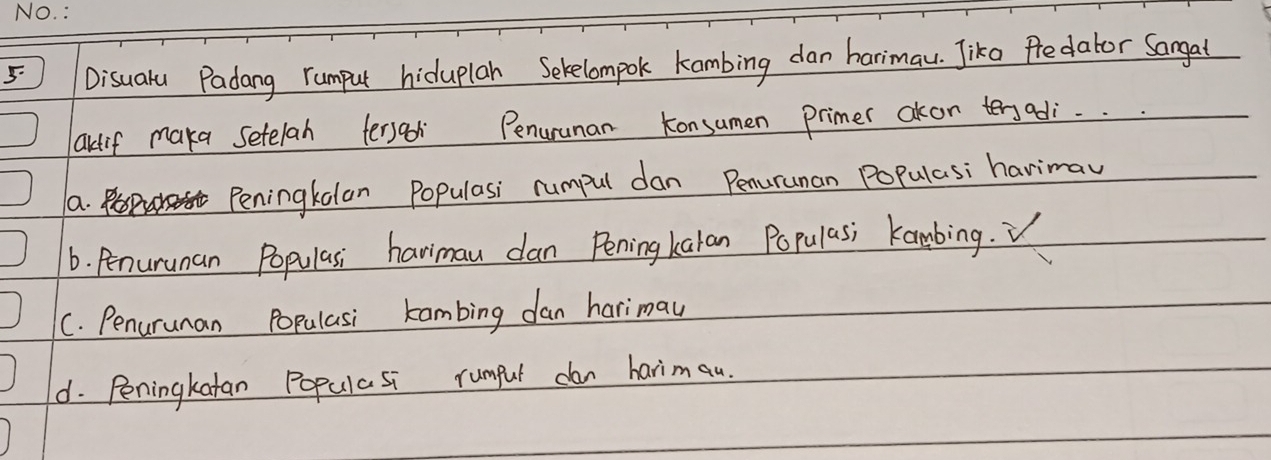 NO.:
5. Disuatu Padang rumput hiduplah Sekelompok kambing dan harimau. Jika Predator Sangat
aktif maka setelah terjadi Penurunan konsumen Primer akan terjadi . . .
a. Peningkatan Populasi rumput dan Penurunan Populasi harimau
b. Penurunan Populasi harimau dan Peningkatan Populasi kambing. ✓
c. Penurunan Populasi kambing dan harimau
d. Peningkatan Populasi rumput dan harimau.